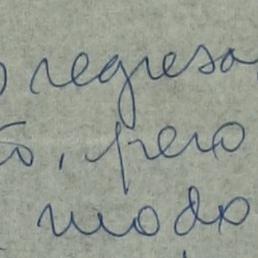 regreso
, pero
modo